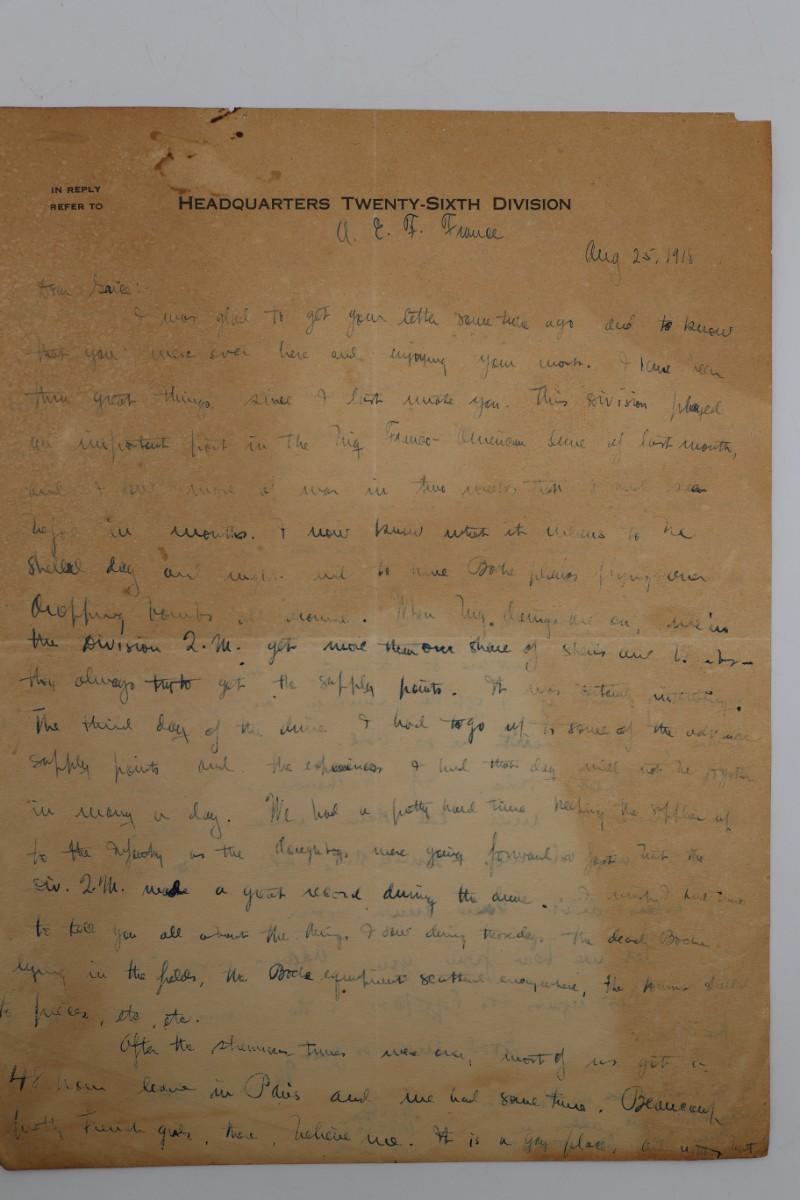 IN REPLY
REFER TO
HEADQUARTERS TWENTY-SIXTH DIVISION
A. E. F. France
Aug 25, 1918
Dear
I was glad to get your letter some time ago and to know
that you were over here and enjoying your work. I have been
thru great things since I last wrote you. This division played
an important part in the big Franco-American drive of last month,
and I saw more of war in two weeks than I had seen
before in months. I now know what it means to be
shelled day and night and to have Boche planes flying over
dropping bombs all around. When big doings are on, we in
the Division Q.M. get more than our share of shells and
they always try to get the supply points. It was certainly interesting.
The third day of the drive I had to go up to some of the advance
supply points and the experiences I had that day will not be forgotten
in many a day. We had a pretty hard time keeping the supplies up
to the Infantry as the doughboys were going forward so fast but the
Div. Q.M. made a great record during the drive. I wish I had time
to tell you all about the things I saw during those days. The dead Boche
lying in the fields, the Boche equipment scattered everywhere, the towns shelled
to pieces, etc, etc.
After the strenuous times were over, most of us got a
48 hour leave in Paris and we had some time. Beaucoup
pretty French girls, there, believe me. It is a gay place,